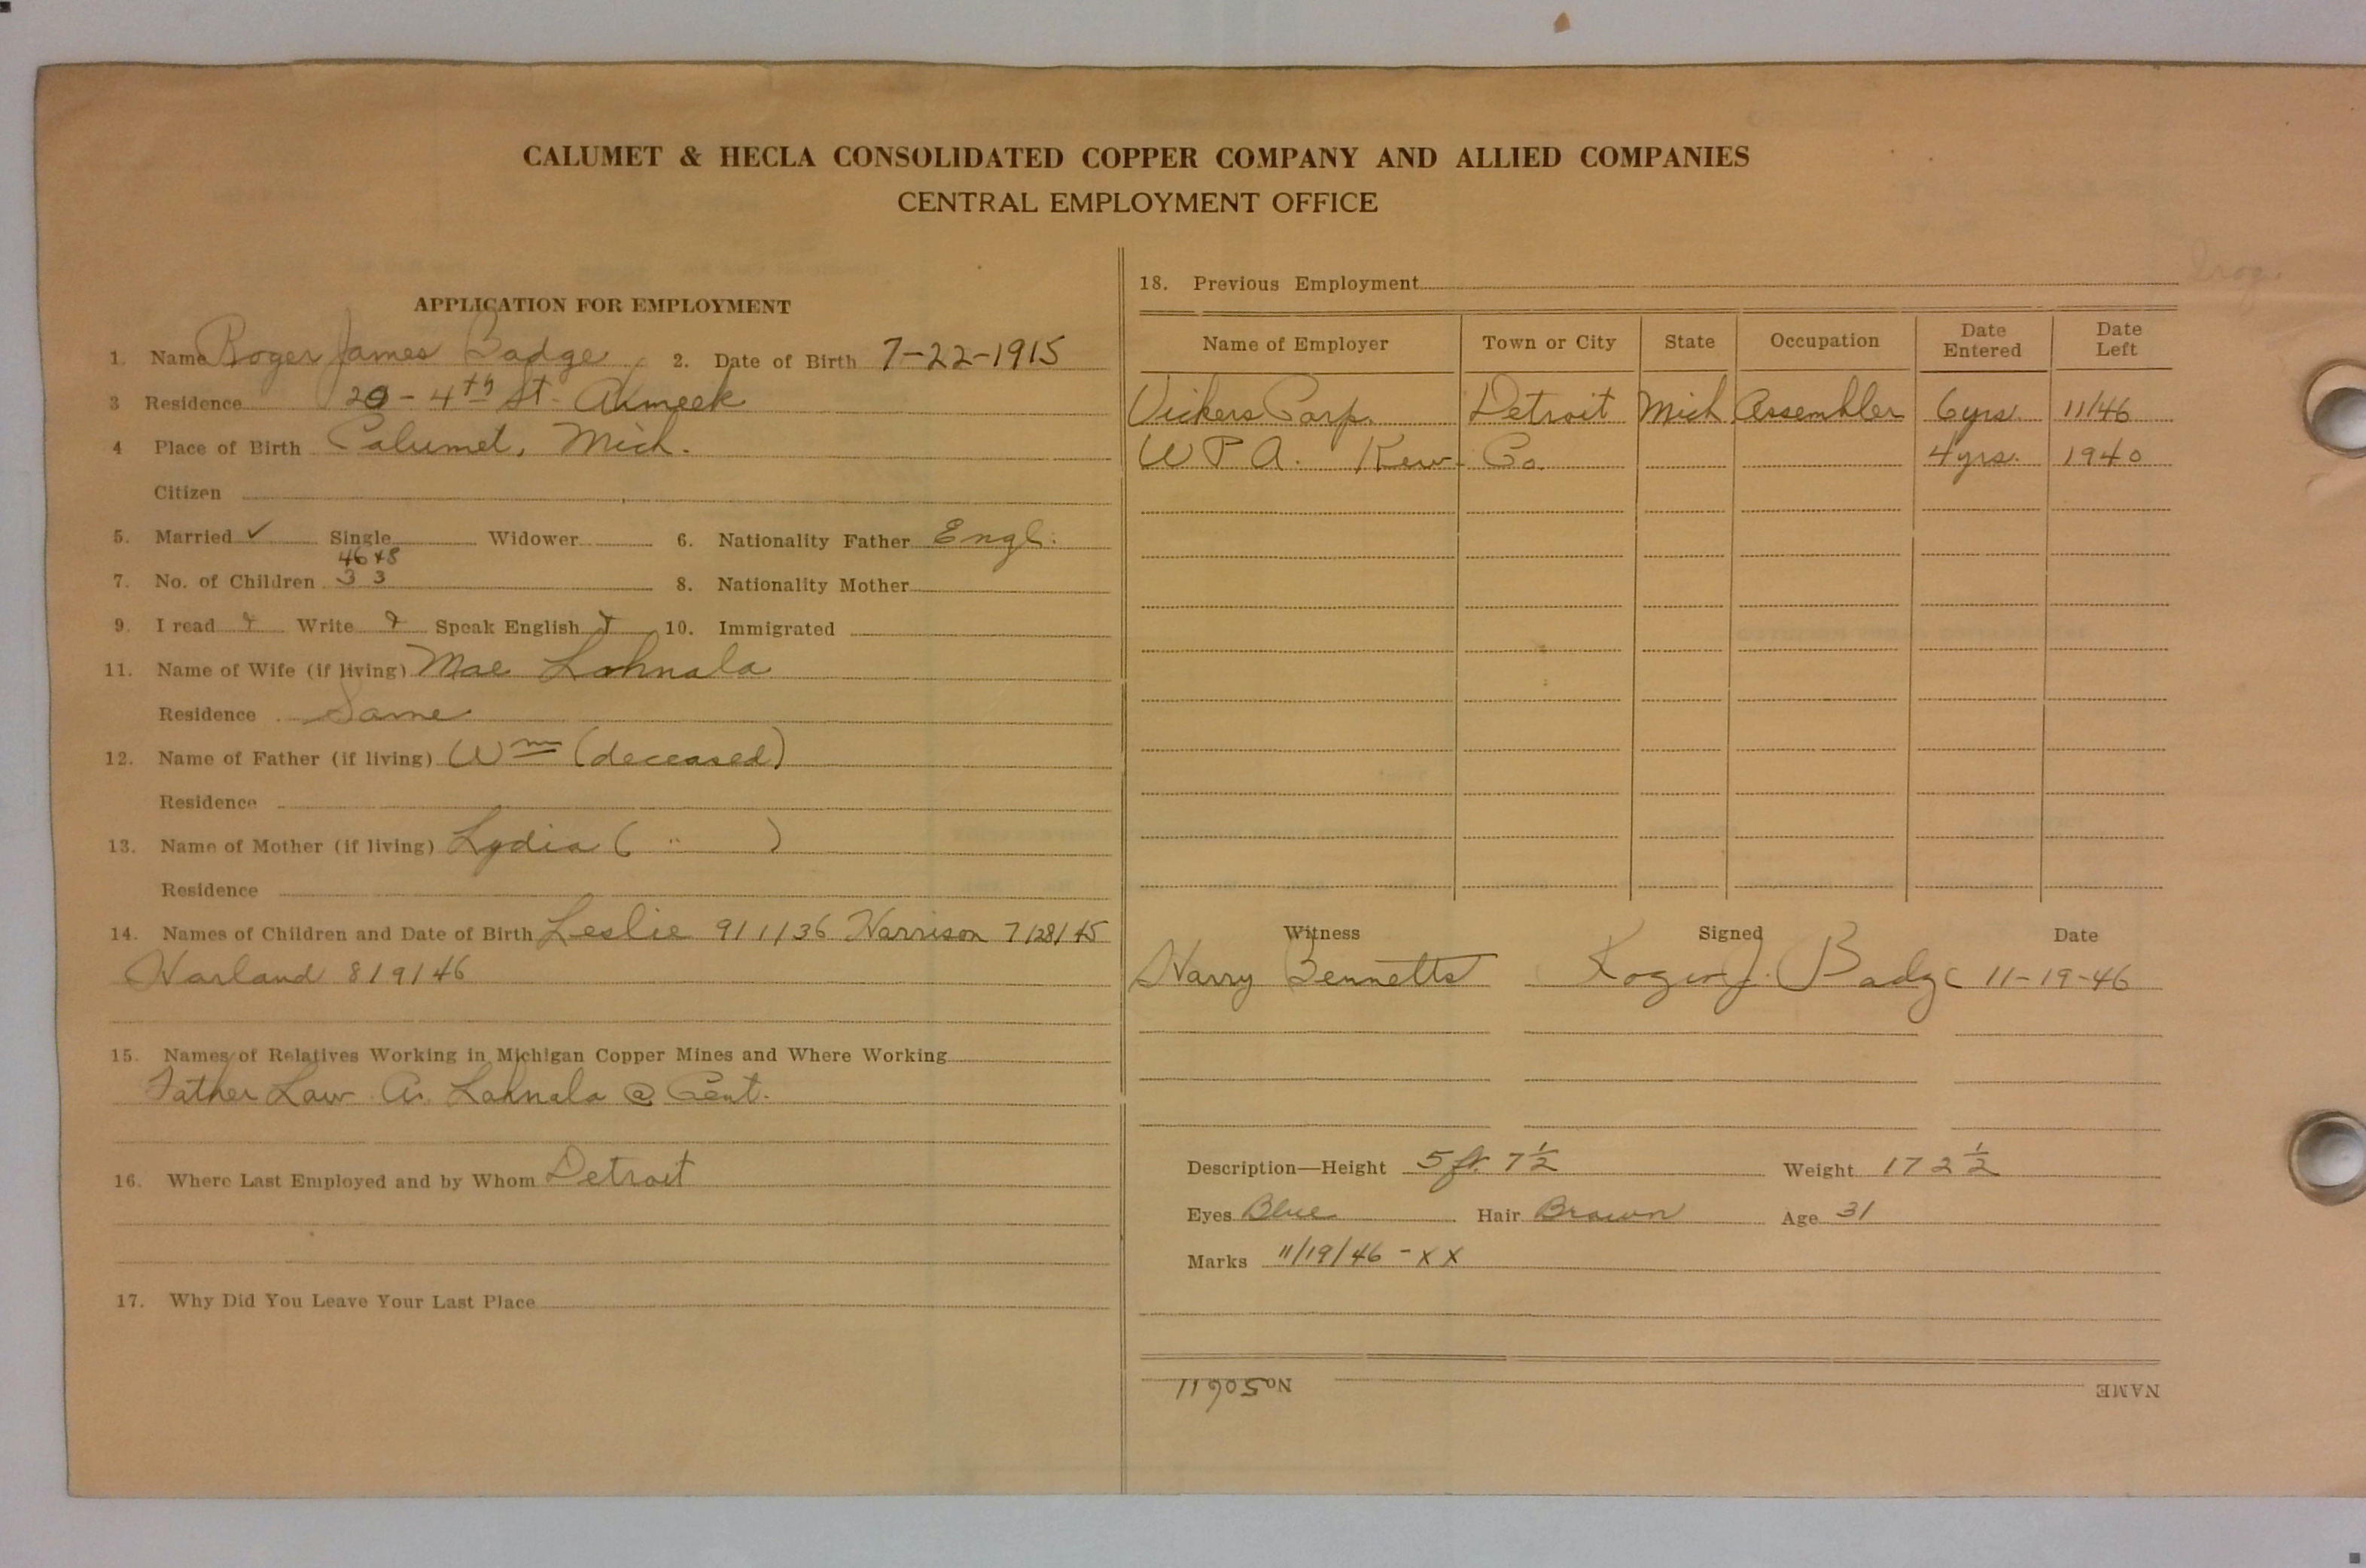 CALUMET & HECLA CONSOLIDATED COPPER COMPANY AND ALLIED COMPANIES
CENTRAL EMPLOYMENT OFFICE
APPLICATION FOR EMPLOYMENT
1. Name Roger James Badge 2. Date of Birth 7-22-1915
3 Residence 20 - 4th St. Ahmeek
4 Place of Birth Calumet, Mich.
Citizen
5. Married ✓ Single Widower 6. Nationality Father Engl.
46 48
7. No. of Children 3 3 8. Nationality Mother
9. I read Write Speak English 10. Immigrated
11. Name of Wife (if living) Mae Lahnala
Residence Same
12. Name of Father (if living) Wm (deceased)
Residence
13. Name of Mother (if living) Lydia ( " )
Residence
14. Names of Children and Date of Birth Leslie 9/1/36 Harrison 7/28/45
Harland 8/9/46
15. Names of Relatives Working in Michigan Copper Mines and Where Working
Father Law A. Lahnala @ Cent.
16. Where Last Employed and by Whom Detroit
17. Why Did You Leave Your Last Place
18. Previous Employment
Name of Employer Town or City State Occupation Date Entered Date Left
Vickers Corp. Detroit Mich Assembler 6 yrs. 11/46
W P A. Kew. Co. 4 yrs. 1940
Witness Signed Date
Harry Bennetts Roger J. Badge 11-19-46
Description—Height 5 ft. 7 1/2 Weight 172 1/2
Eyes Blue Hair Brown Age 31
Marks 11/19/46 - X X
NAME No. 50611